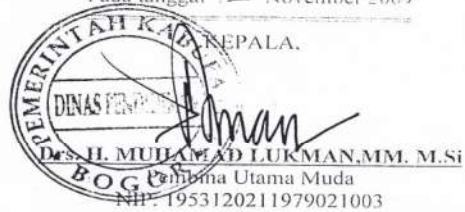 November 2009
KEPALA,
PEMERINTAH KABUPA
DINAS
BOGOR
Drs. H. MUHAMAD LUKMAN,MM. M.Si
Pembina Utama Muda
NIP. 1953120211979021003